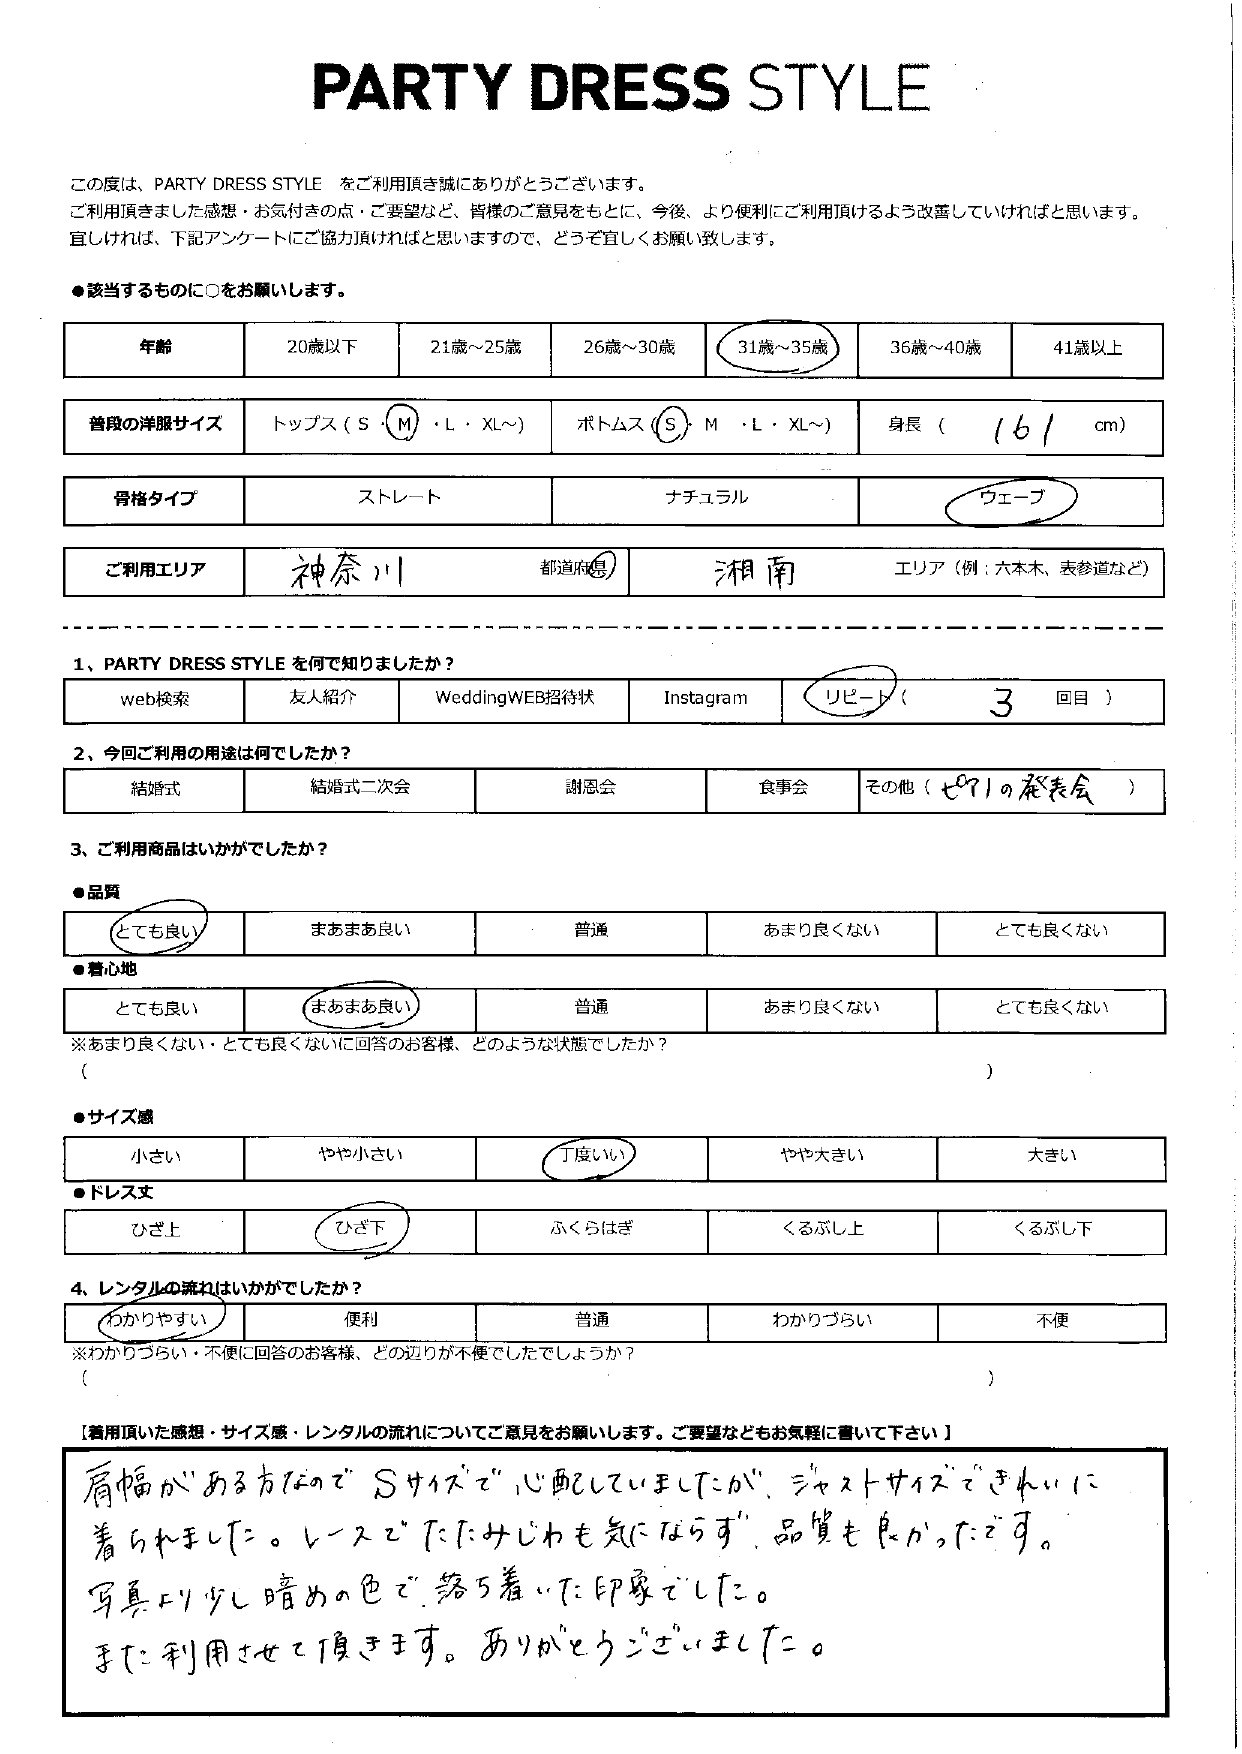 PARTY DRESS STYLE
この度は、PARTY DRESS STYLE をご利用頂き誠にありがとうございます。
ご利用頂きました感想・お気付きの点・ご要望など、皆様のご意見をもとに、今後、より便利にご利用頂けるよう改善していければと思います。
宜しければ、下記アンケートにご協力頂ければと思いますので、どうぞ宜しくお願い致します。
●該当するものに○をお願いします。
年齢 20歳以下 21歳～25歳 26歳～30歳 31歳～35歳 36歳～40歳 41歳以上
普段の洋服サイズ トップス（ S ・ M ・ L ・ XL～） ボトムス（ S ・ M ・ L ・ XL～） 身長（ 161 cm）
骨格タイプ ストレート ナチュラル ウェーブ
ご利用エリア 神奈川 都道府県 湘南 エリア（例：六本木、表参道など）
1、PARTY DRESS STYLE を何で知りましたか？
web検索 友人紹介 WeddingWEB招待状 Instagram リピート（ 3 回目 ）
2、今回ご利用の用途は何でしたか？
結婚式 結婚式二次会 謝恩会 食事会 その他（ ピアノの発表会 ）
3、ご利用商品はいかがでしたか？
●品質
とても良い まあまあ良い 普通 あまり良くない とても良くない
●着心地
とても良い まあまあ良い 普通 あまり良くない とても良くない
※あまり良くない・とても良くないに回答のお客様、どのような状態でしたか？
（ ）
●サイズ感
小さい やや小さい 丁度いい やや大きい 大きい
●ドレス丈
ひざ上 ひざ下 ふくらはぎ くるぶし上 くるぶし下
4、レンタルの流れはいかがでしたか？
わかりやすい 便利 普通 わかりづらい 不便
※わかりづらい・不便に回答のお客様、どの辺りが不便でしたでしょうか？
（ ）
【着用頂いた感想・サイズ感・レンタルの流れについてご意見をお願いします。ご要望などもお気軽に書いて下さい 】
肩幅がある方なので Sサイズで心配していましたが、ジャストサイズできれいに
着られました。レースでたたみじわも気にならず、品質も良かったです。
写真より少し暗めの色で、落ち着いた印象でした。
また利用させて頂きます。ありがとうございました。